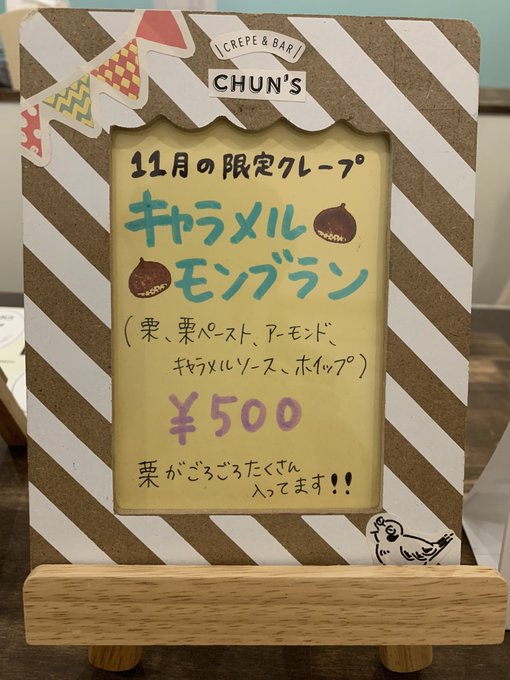 CREPE & BAR
CHUN'S
11月の限定クレープ
キャラメル
モンブラン
(栗、栗ペースト、アーモンド、
キャラメルソース、ホイップ)
¥500
栗がごろごろたくさん
入ってます!!